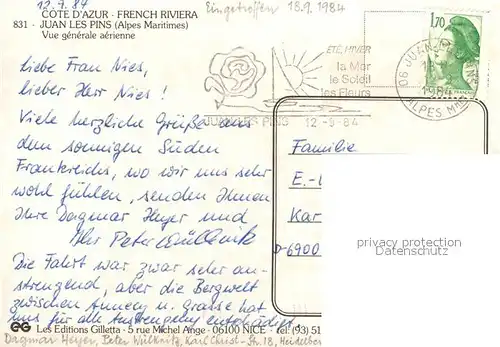 12.9.84
Eingetroffen 18.9.1984
COTE D'AZUR - FRENCH RIVIERA
831 - JUAN LES PINS (Alpes Maritimes)
Vue générale aérienne
1,70
ÉTÉ, HIVER
la Mer
le Soleil
les Fleurs
06 JUAN
1984
ALPES
JUAN LES PINS 12-9-84
liebe Frau Nies,
lieber Herr Nies!
Viele herzliche Grüße aus
dem sonnigen Süden
Frankreichs, wo wir uns sehr
wohl fühlen, senden Ihnen
Ihre Dagmar Heyer und
Ihr Peter
Die Fahrt war zwar sehr an-
strengend, aber die Bergwelt
zwischen Annecy u. Grasse hat
uns für alle Anstrengung entschädigt.
Familie
E.-
Kar
D-6900
privacy protection
Datenschutz
Les Editions Gilletta - 5 rue Michel Ange - 06100 NICE - Tel. (93) 51
Dagmar Heyer, Peter Karl Christ-Str. 18, Heidelber